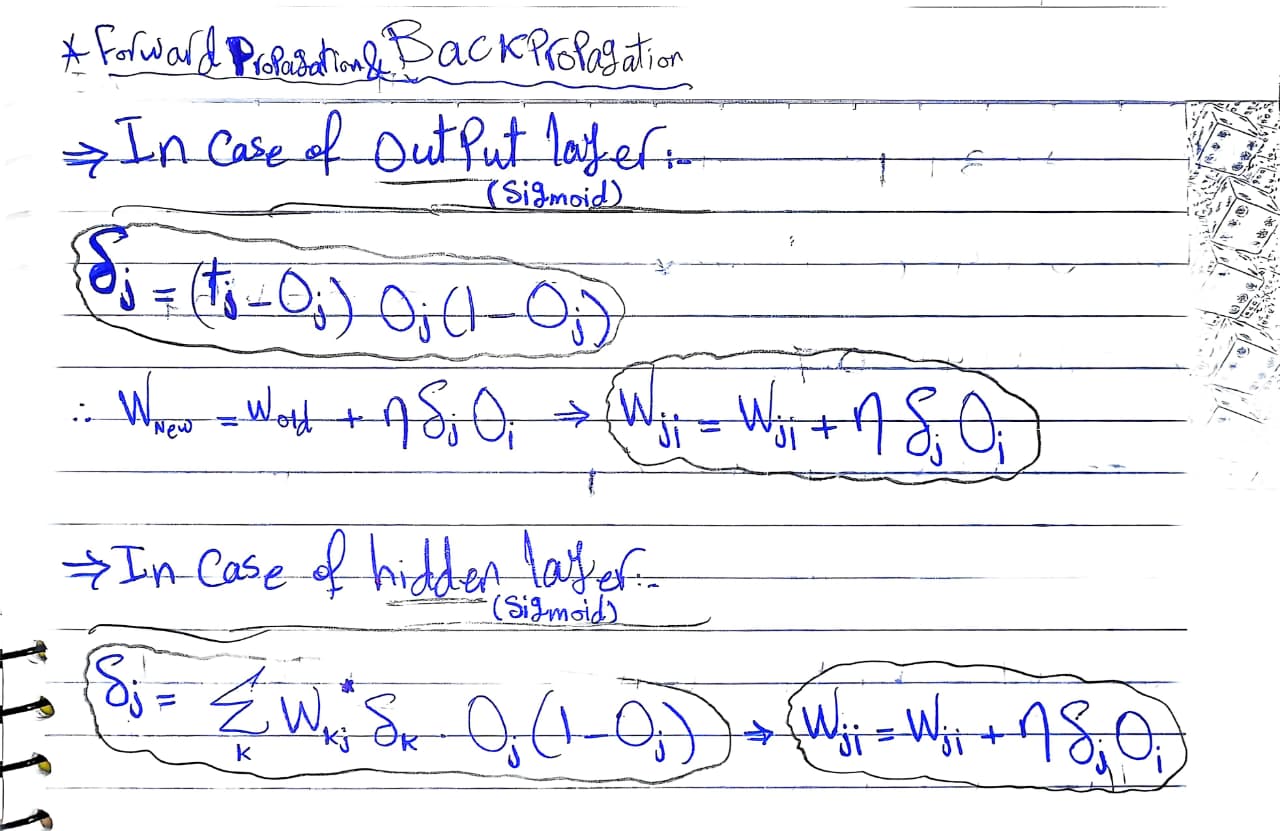 * Forward Propagation & BackPropagation
⇒ In Case of Output layer:-
(Sigmoid)
δj = (tj - Oj) Oj (1 - Oj)
∴ WNew = Wold + η δj Oi ⇒ Wji = Wji + η δj Oi
⇒ In Case of hidden layer:-
(Sigmoid)
δj = Σk Wkj* δk . Oj (1 - Oj) ⇒ Wji = Wji + η δj Oi